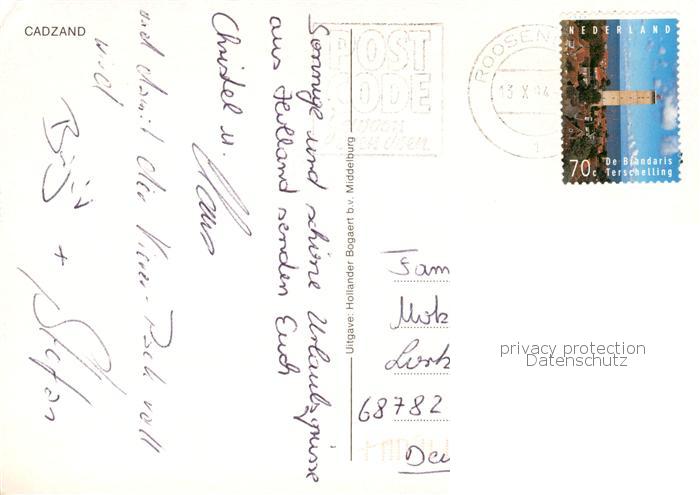 CADZAND
Sonnige und schöne Urlaubsgrüsse
aus Holland senden Euch
Christel u.
Klaus
und damit der Vierer-Pack voll
wird
+ Stefan
Uitgave: Hollander Bogaert b.v. Middelburg
POST
CODE
ROOSEN
13 X 94
NEDERLAND
70c
De Brandaris
Terschelling
Fam
68782
privacy protection
Datenschutz